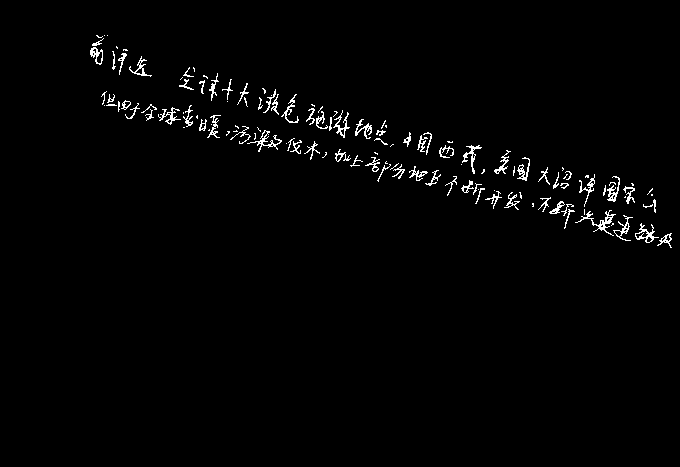 前评选 全球十大濒危旅游地点,中国西藏,美国大沼泽国家公
但由于全球变暖,污染及伐木,加上部份地区不断开发,不断兴建道路及